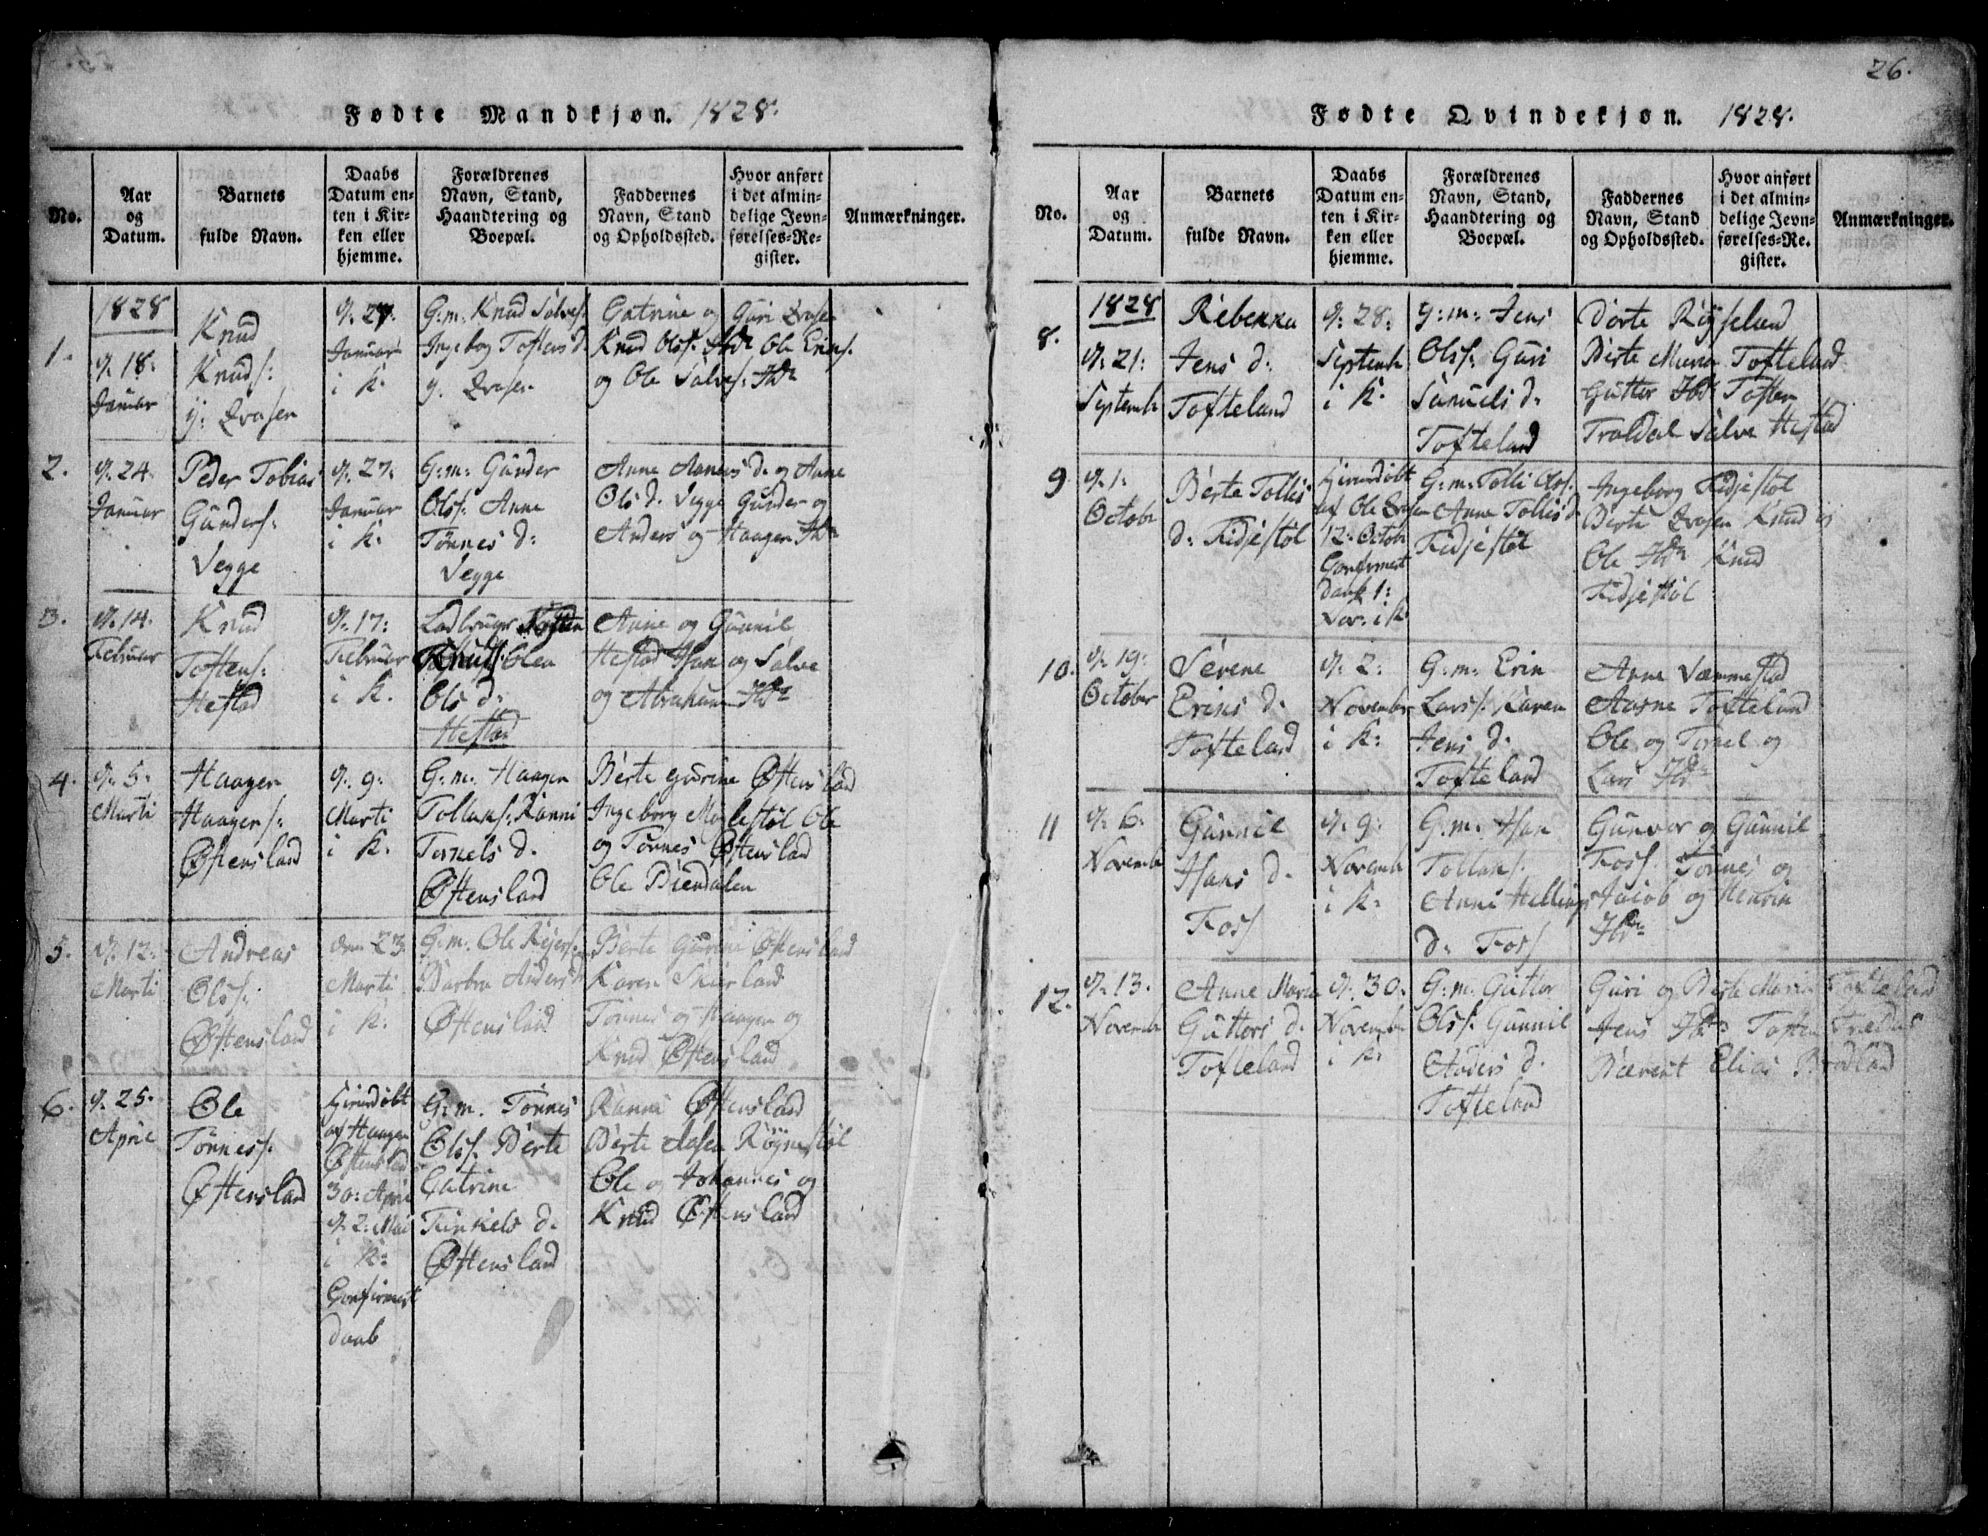 Fødte Mandkjøn. 1828.
No.
Aar
og
Datum.
Barnets
fulde Navn.
Daabs
Datum en-
ten i Kir-
ken eller
hjemme.
Forældrenes
Navn, Stand,
Haandtering og
Boepæl.
Faddernes
Navn, Stand
og Opholdssted.
Hvor anført
i det almin-
delige Jevn-
førelses-Re-
gister.
Anmærkninger.
1.
1828
18:
Januar
Knud
Knuds:
27.
Januar
i K.
G:m: Knud Salves:
Ingebog Tostens d.
Catrine og Guri
Knud Ols: Ole
og Ole Salves:
2.
24.
Januar
Peder Tobias
Gunders:
Vegge
27:
Januar
i K:
G:m: Gunder
Ols: Anne
Tønnes d:
Vegge
Anne d. og Anne
Ols d. Vegge Gunder og
Anders og Haagen
3.
14.
Februar
Knud
Tostens:
Hestad
17:
Februar
i K.
Olea
Ols d:
Hestad
Anne og Gunnil
Hestad Han og Salve
og Abraham
4.
5.
Marti
Haagen
Haagens:
Østensland
9:
Marti
i K.
G:m: Haagen
Tollaks: Ranni
Terkels d.
Østensland
Berte Gurine Østensland
Ingeborg Ole
og Tønnes Østensland
Ole
5.
12:
Marti
Andreas
Ols:
Østensland
den 23
Marti
i K:
G:m. Ole
Barbra Anders d
Østensland
Berte Gurine Østensland
Karen
Tønnes og Haagen og
Knud Østensland
6.
25.
April
Ole
Tønnes:
Østensland
Hiemdøbt
af Haagen
Østensland
30: April
2: Mai
i K:
Confirmert
Daab
G:m. Tønnes
Ols: Berte
Catrine
d.
Østensland
Ranni Østensland
Berte
Ole og Johannes og
Knud Østensland
26.
Fødte Qvindekjøn. 1828.
No.
Aar
og
Datum.
Barnets
fulde Navn.
Daabs
Datum en-
ten i Kir-
ken eller
hjemme.
Forældrenes
Navn, Stand,
Haandtering og
Boepæl.
Faddernes
Navn, Stand
og Opholdssted.
Hvor anført
i det almin-
delige Jevn-
førelses-Re-
gister.
Anmærkninger.
8.
1828
21:
Septembr
Rebekka
Jens d:
Tofteland
28:
Septembr
i K.
G:m: Jens
Ols: Guri
Samuels d.
Tofteland
Dorte
Berte Maria Tofteland
Gutter Tosten
Traldal Salve Hestad
9
1:
Octobr
Berte Tollis
d: Fidjestøl
Hiemdøbt
af Ole
12: Octobr
Confirmert
Daab 1:
Nov: i K
G:m: Tolli Ols:
Anne Tollis d
Fidjestøl
Ingeborg Fidjestøl
Berte Knud og
Ole Knud
Fidjestøl
10.
19:
October
Serene
Erics d.
Tofteland
2:
November
i K:
G:m: Eric
Lars: Karen
Jens d.
Tofteland
Anne Væmmestad
Aasne Tofteland
Ole og Terkel og
Lars
11
6.
Novembr
Gunnil
Hans d.
Foss
9:
Novembr
i K:
G:m: Han
Tollaks:
Anne Hellings
d: Foss
Gunvor og Gunnil
Foss. Tønnes og
Jacob og Henrik
12.
13.
Novembr
Anne Maria
Gutters d.
Tofteland
30.
Novembr
i K:
G:m: Gutter
Ols: Gunnil
Anders d.
Tofteland
Guri og Berte Maria Tofteland
Jens Tosten
Berent Elias